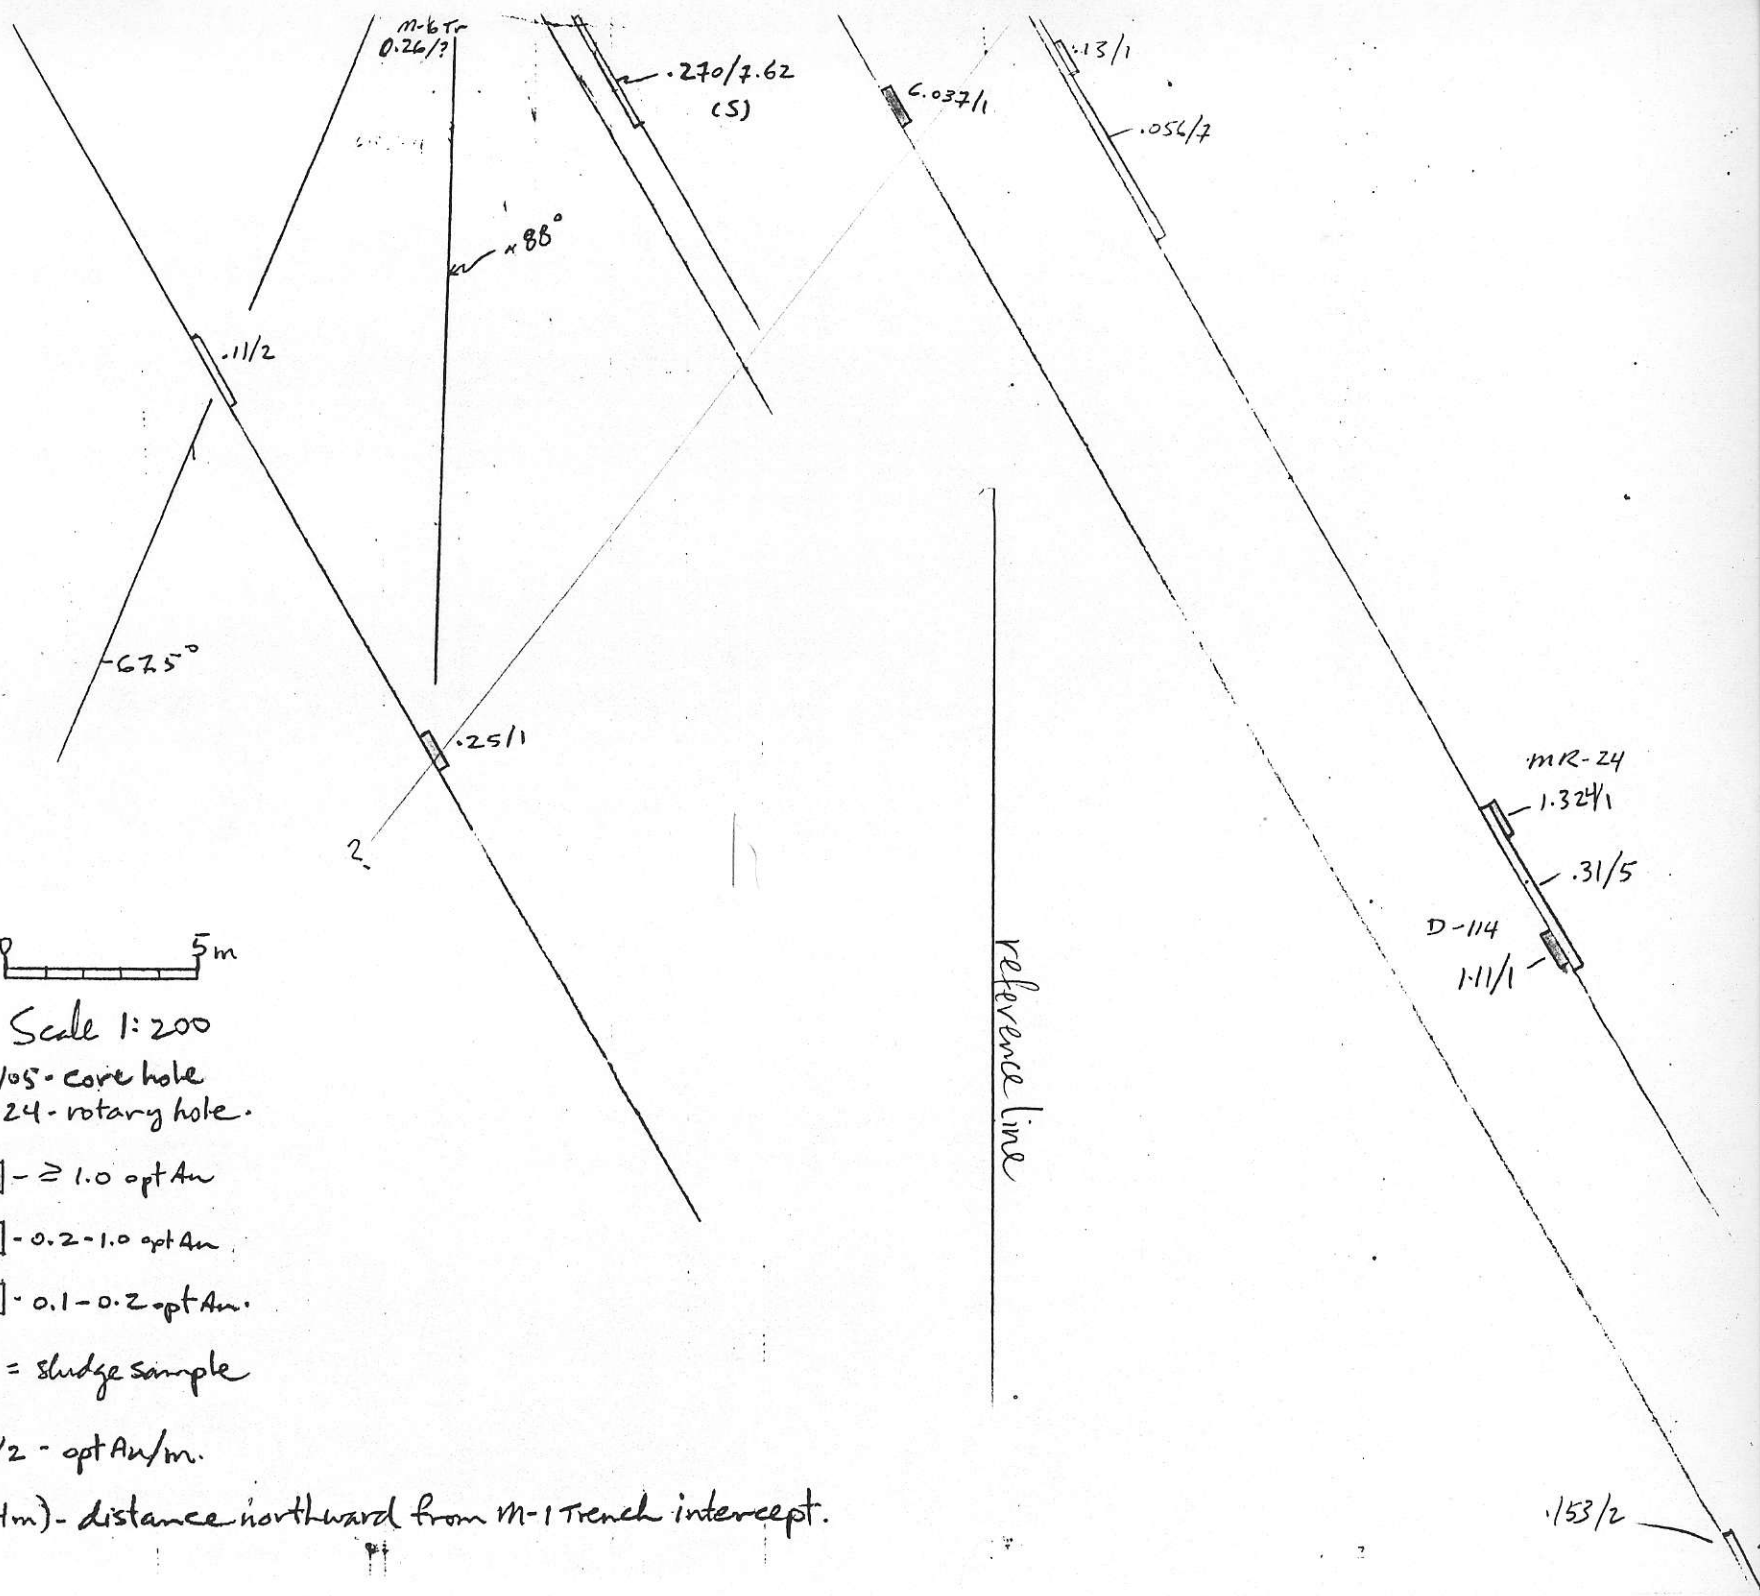 M-6 Tr
0.26/?
.270/7.62
(S)
6.037/1
.13/1
.056/7
88°
.11/2
-67.5°
.25/1
?
MR-24
1.324/1
.31/5
D-114
1.11/1
reference line
0 5 m
Scale 1:200
/05 - core hole
24 - rotary hole.
- ≥ 1.0 opt Au
- 0.2 - 1.0 opt Au
- 0.1 - 0.2 opt Au.
= sludge sample
/2 - opt Au/m.
m) - distance northward from M-1 Trench intercept.
.153/2